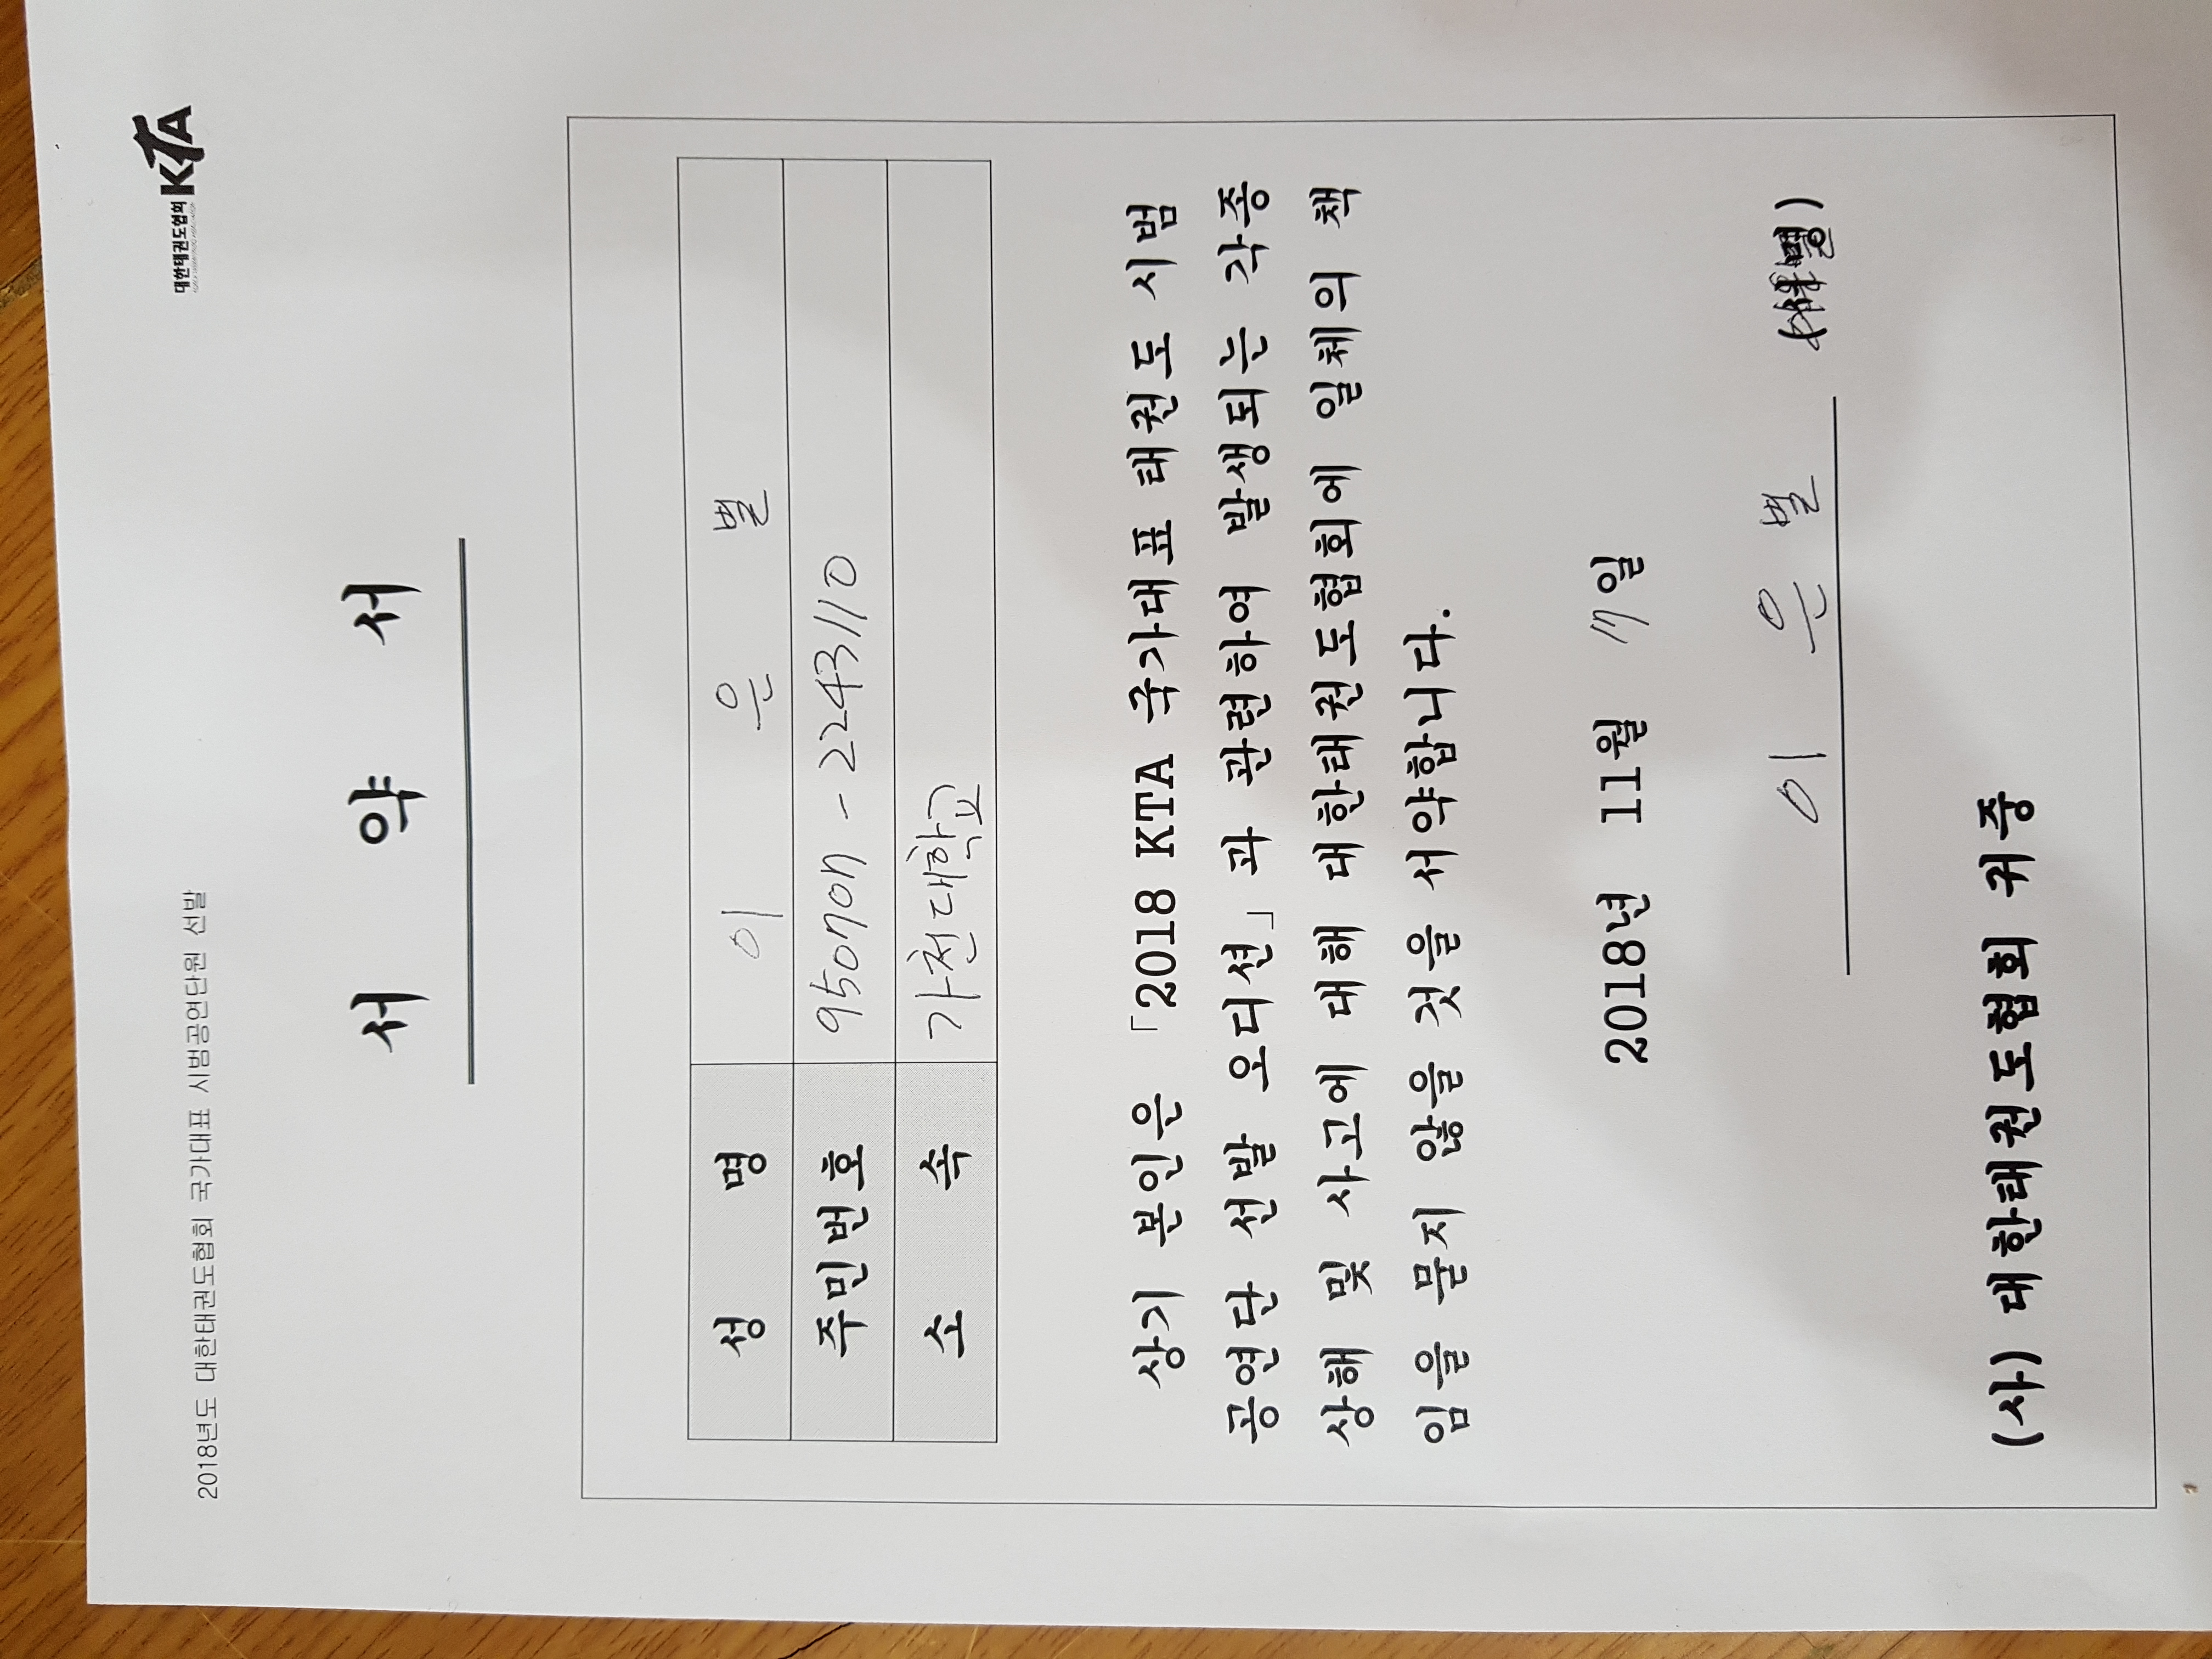 2018년도 대한태권도협회 국가대표 시범공연단원 선발
대한태권도협회 KTA
서 약 서
성 명 이 은 별
주민번호 950707 - 2243110
소 속 가천대학교
상기 본인은 「2018 KTA 국가대표 태권도 시범
공연단 선발 오디션」과 관련하여 발생되는 각종
상해 및 사고에 대해 대한태권도협회에 일체의 책
임을 묻지 않을 것을 서약합니다.
2018년 11월 17일
이 은 별 (서명)
(사) 대한태권도협회 귀중